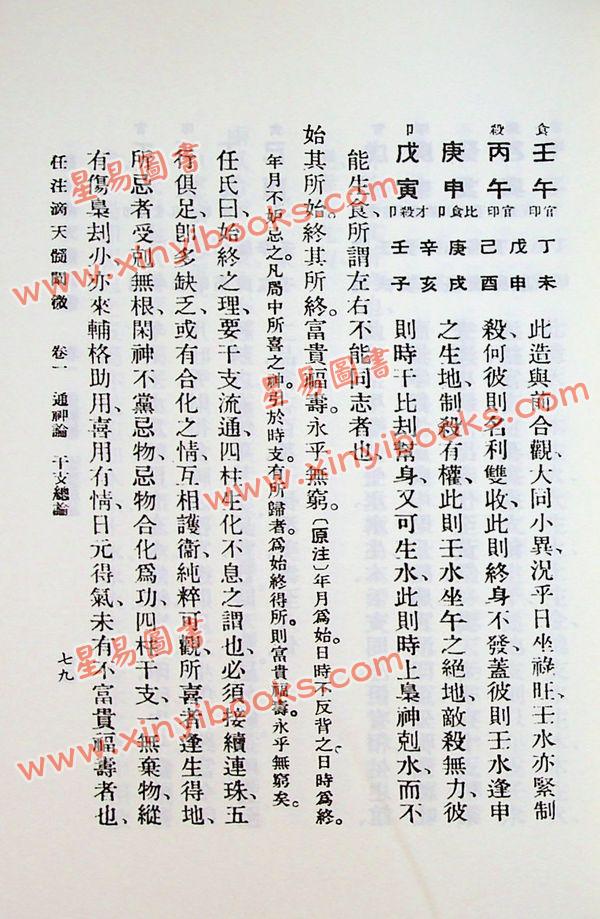 食 壬午 官印 丁未
戊申
殺 丙午 官印 己酉
庚申 比食印 庚戌
辛亥
卩 戊寅 才殺卩 壬子
此造與前合觀大同小異、況乎日坐祿旺、壬水亦緊制
殺、何彼則名利雙收、此則終身不發、蓋彼則壬水逢申
之生地、制殺有權、此則壬水坐午之絕地、敵殺無力、彼
則時干比刦幫身、又可生水、此則時上梟神剋水、而不
能生食、所謂左右不能同志者也、
始其所始。終其所終。富貴福壽。永乎無窮。〔原注〕年月為始。日時不反背之。日時為終。
年月不妒忌之。凡局中所喜之神。引於時支。有所歸者。為始終得所。則富貴福壽。永乎無窮矣。
任氏曰、始終之理、要干支流通、四柱生化、不息之謂也、必須接續連珠、五
行俱足、卽多缺乏、或有合化之情、互相護衞、純粹可觀、所喜者逢生得地、
所忌者受剋無根、閑神不黨忌物、忌物合化為功、四柱干支、一無棄物、縱
有傷梟刦刃、亦來輔格助用、喜用有情、日元得氣、未有不富貴福壽者也、
任注滴天髓闡微 卷一 通神論 干支總論 七九
星易圖書
www.xinyibooks.com
星易圖書
www.xinyibooks.com
星易圖書
www.xinyibooks.com
星易圖書
www.xinyibooks.com